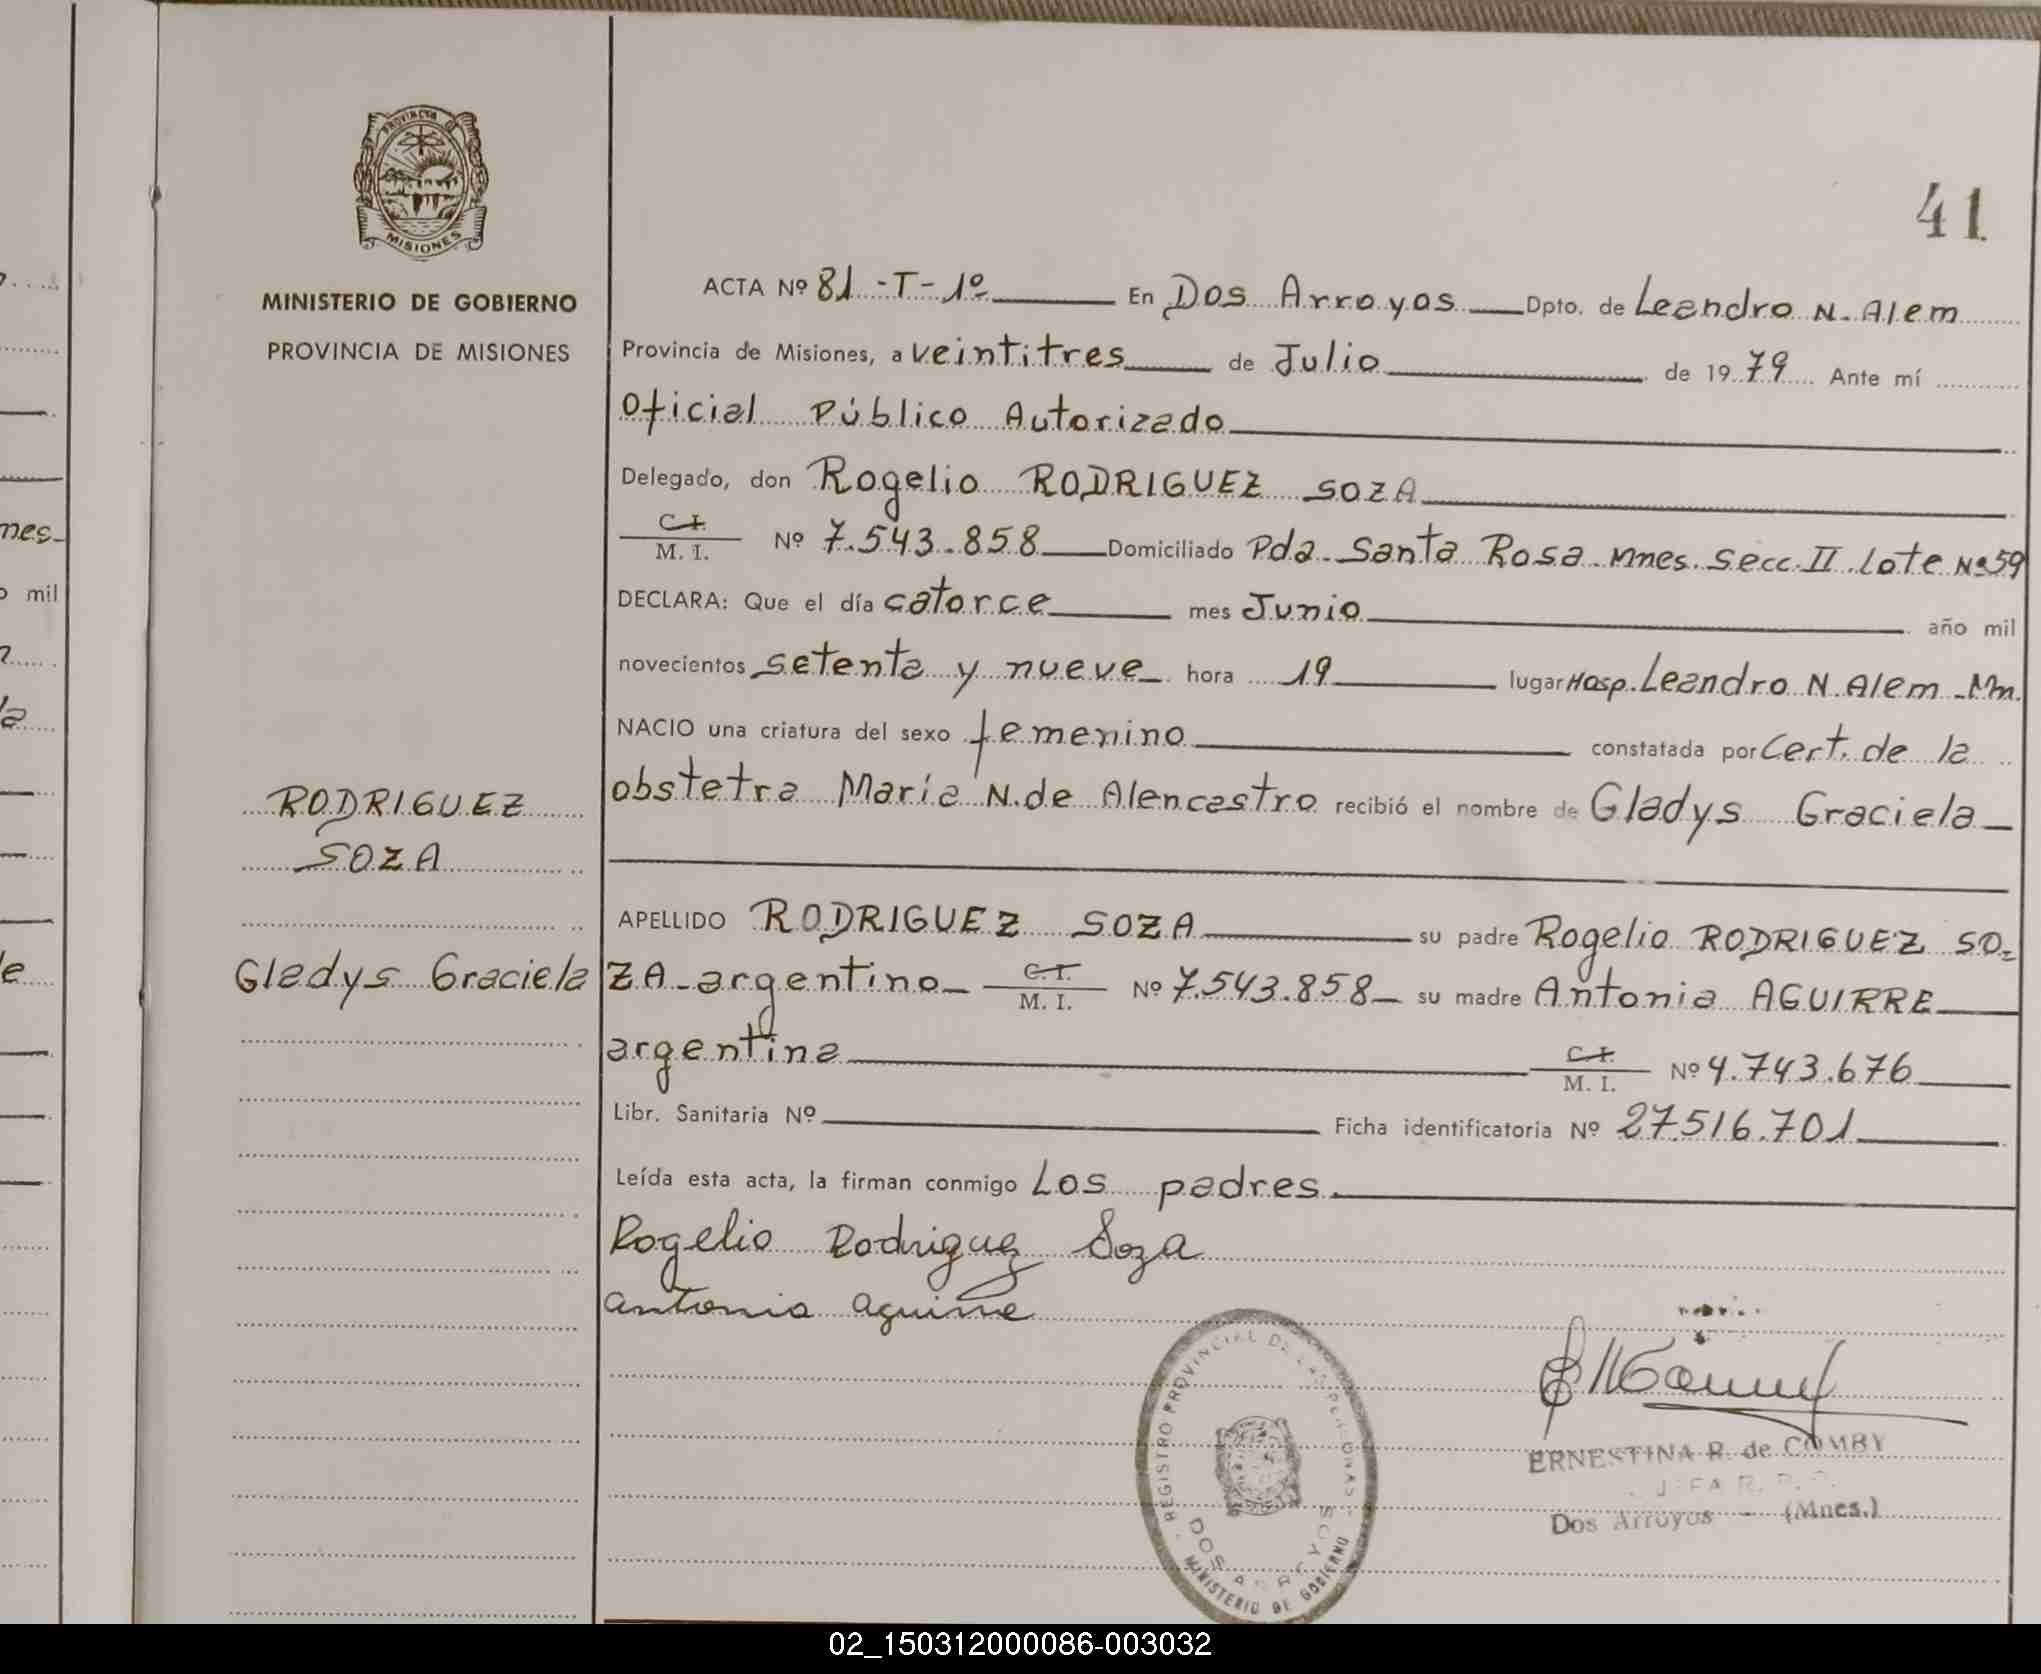 PROVINCIA DE
MISIONES
MINISTERIO DE GOBIERNO
PROVINCIA DE MISIONES
41
ACTA Nº 81 - T - 1º En Dos Arroyos Dpto. de Leandro N. Alem
Provincia de Misiones, a veintitres de Julio de 1979 Ante mí
Oficial Público Autorizado
Delegado, don Rogelio RODRIGUEZ SOZA
C. I.
M. I. Nº 7.543.858 Domiciliado Pda. Santa Rosa. Mnes. Secc. II Lote Nº 59
DECLARA: Que el día catorce mes Junio año mil
novecientos setenta y nueve hora 19 lugar Hosp. Leandro N. Alem - Mn.
NACIO una criatura del sexo femenino constatada por Cert. de la
obstetra María N. de Alencastro recibió el nombre de Gladys Graciela
APELLIDO RODRIGUEZ SOZA su padre Rogelio RODRIGUEZ SO=
ZA - argentino - C. I.
M. I. Nº 7.543.858 su madre Antonia AGUIRRE
argentina C. I.
M. I. Nº 4.743.676
Libr. Sanitaria Nº Ficha identificatoria Nº 27.516.701
Leída esta acta, la firman conmigo Los padres.
Rogelio Rodriguez Soza
Antonia Aguirre
RODRIGUEZ
SOZA
Gladys Graciela
REGISTRO PROVINCIAL DE LAS PERSONAS
DOS ARROYOS
MINISTERIO DE GOBIERNO
ERNESTINA R. de COMBY
Dos Arroyos - (Mnes.)
nes.
mil
02_150312000086-003032